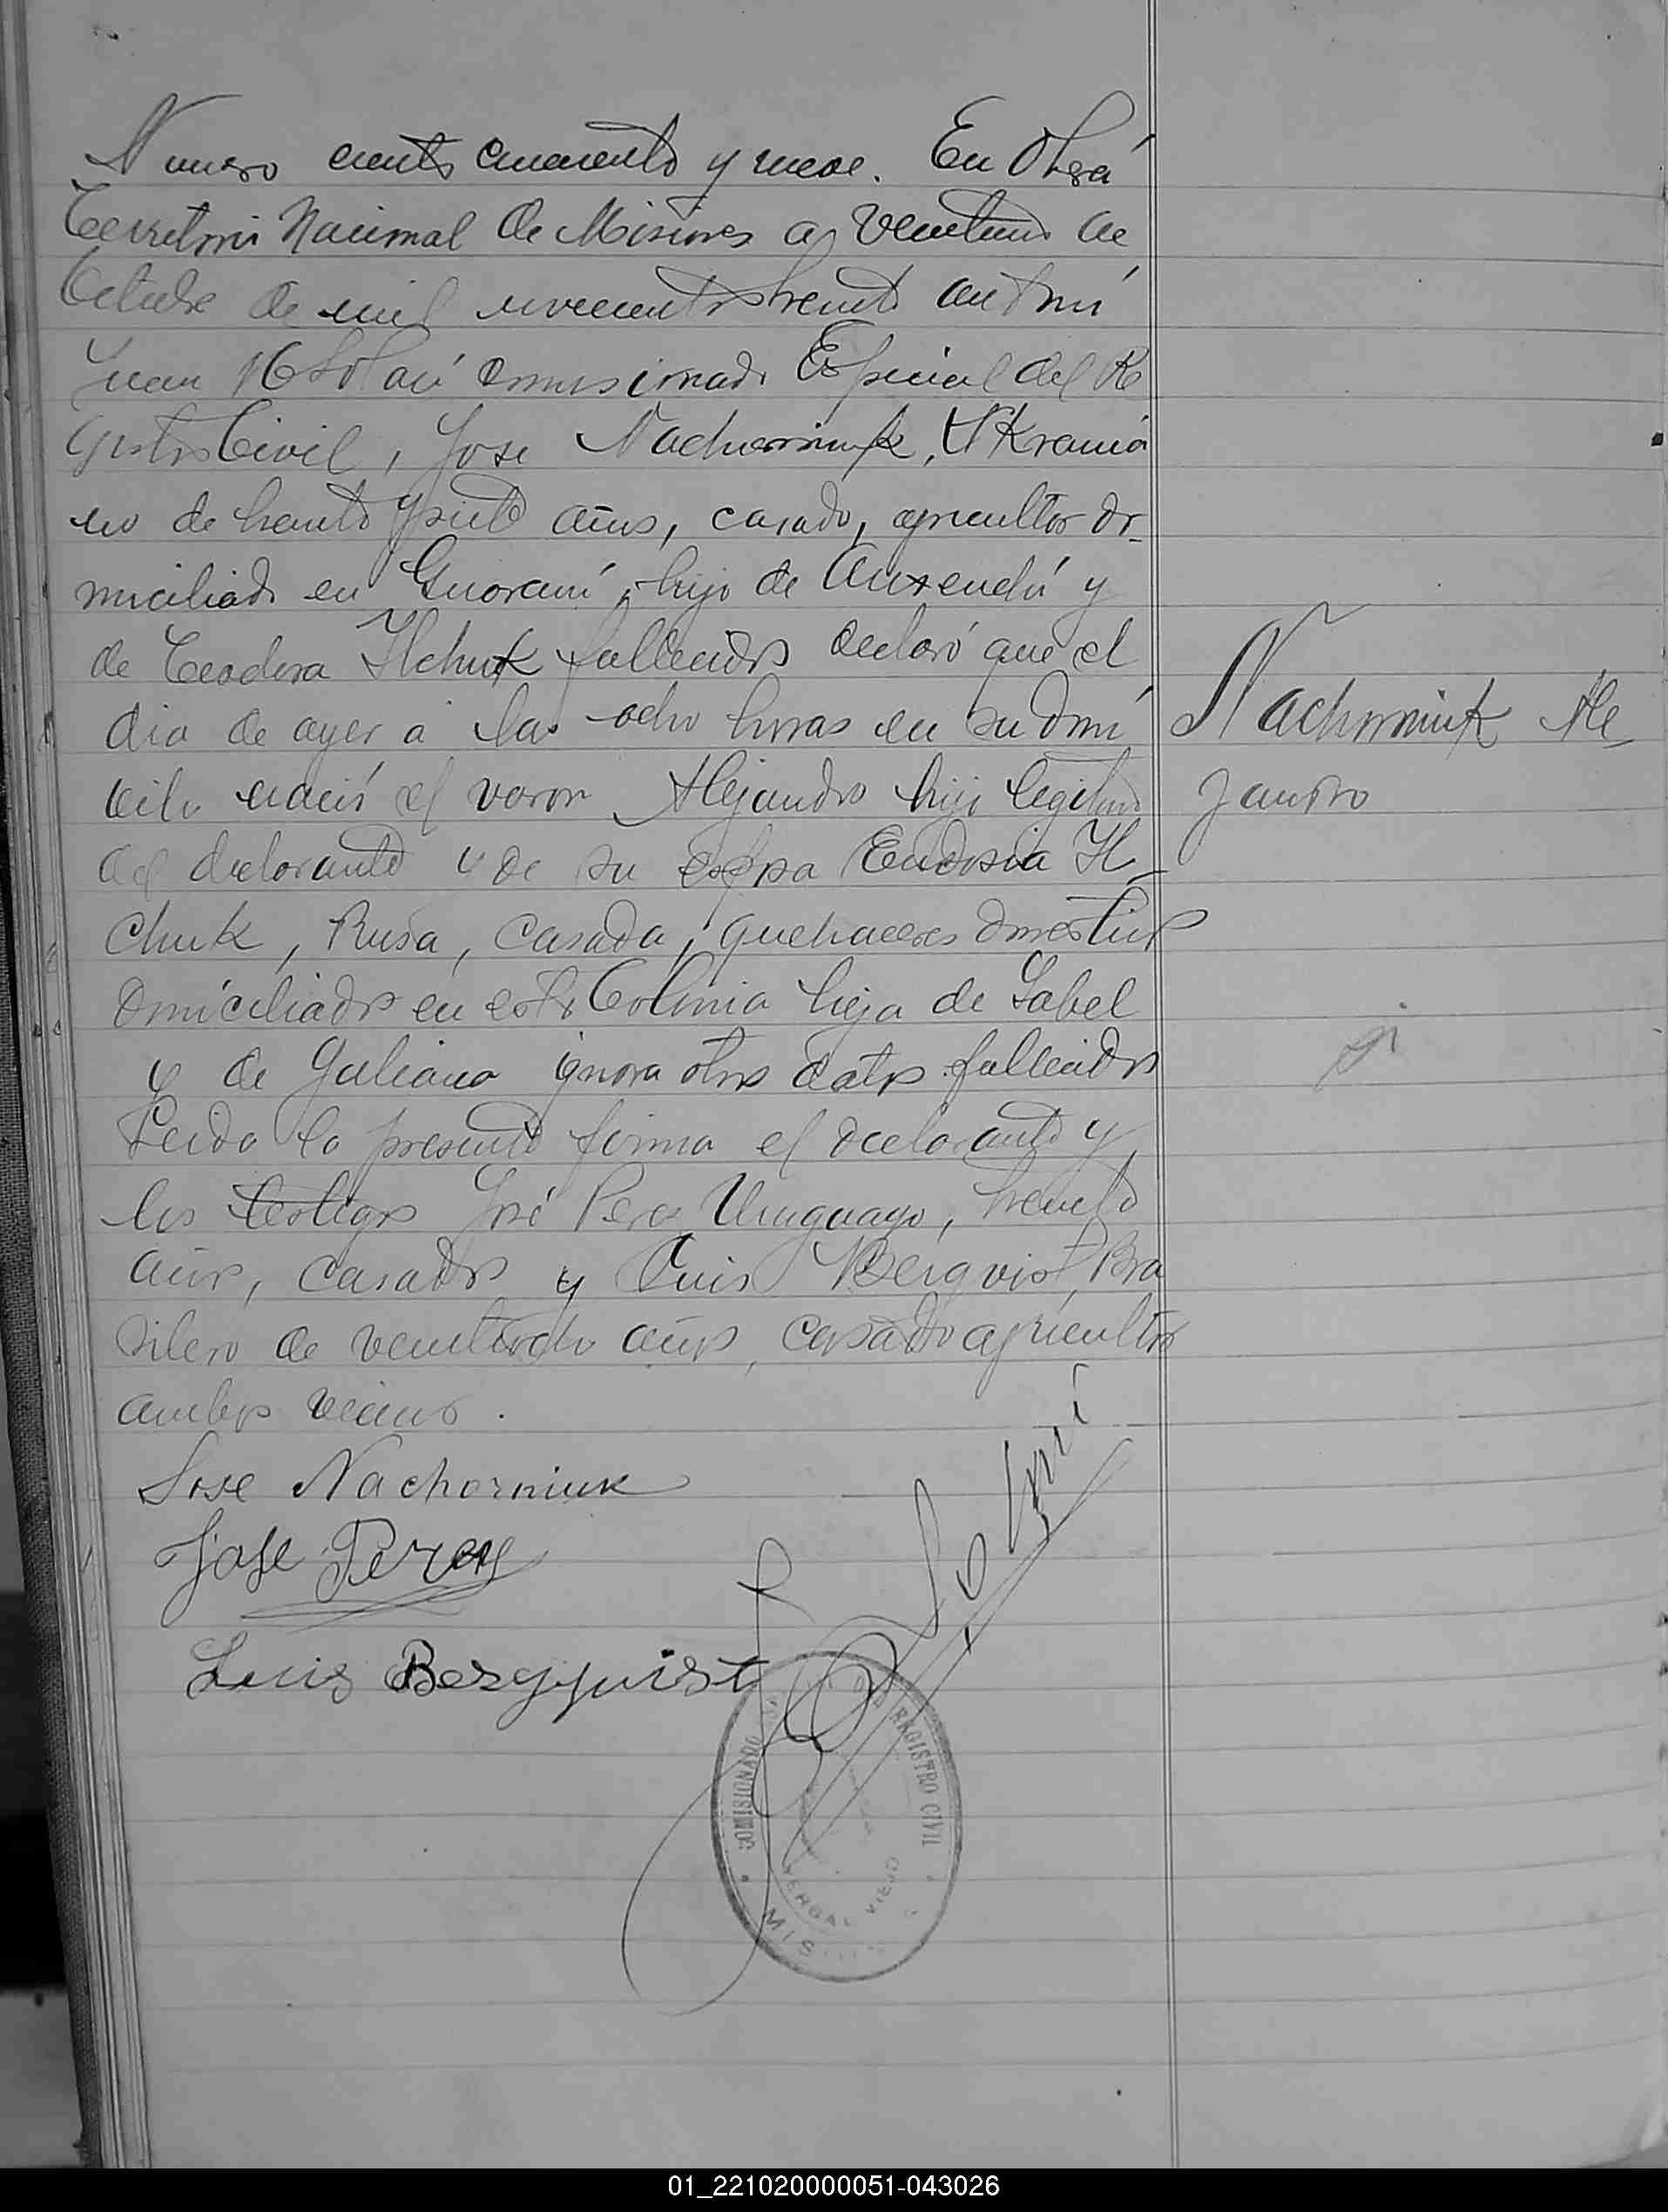 Numero ciento cincuenta y nueve. En Oberá
Territorio Nacional de Misiones a veintiuno de
Octubre de mil novecientos treinta ante mi
Juan Solari Comisionado Especial del Re
gistro Civil, Jose Nachorniuk, Ukrania
no de treinta y siete años, casado, agricultor do-
miciliado en Guarani, hijo de Auxendii y
de Teodora Ilchuk fallecidos declaró que el
dia de ayer a las ocho horas en su domi
cilio nació el varon Alejandro hijo legitimo
del declarante y de su esposa Eudosia Il-
chuk, Rusa, casada, quehaceres domesticos
domiciliados en esta Colonia hija de Sabel
y de Juliana ignora otros datos fallecidos
Leida la presente firma el declarante y
los testigos José Perez Uruguayo, treinta
años, casado y Luis Bergvist, Bra
silero de veintiocho años, casado agricultor
ambos vecinos.
Nachorniuk Ale
jandro
Jose Nachorniuk
Jose Perez
Luis Bergquist
J Solari
COMISIONADO REGISTRO CIVIL
YERBAL VIEJO
MIS
01_221020000051-043026